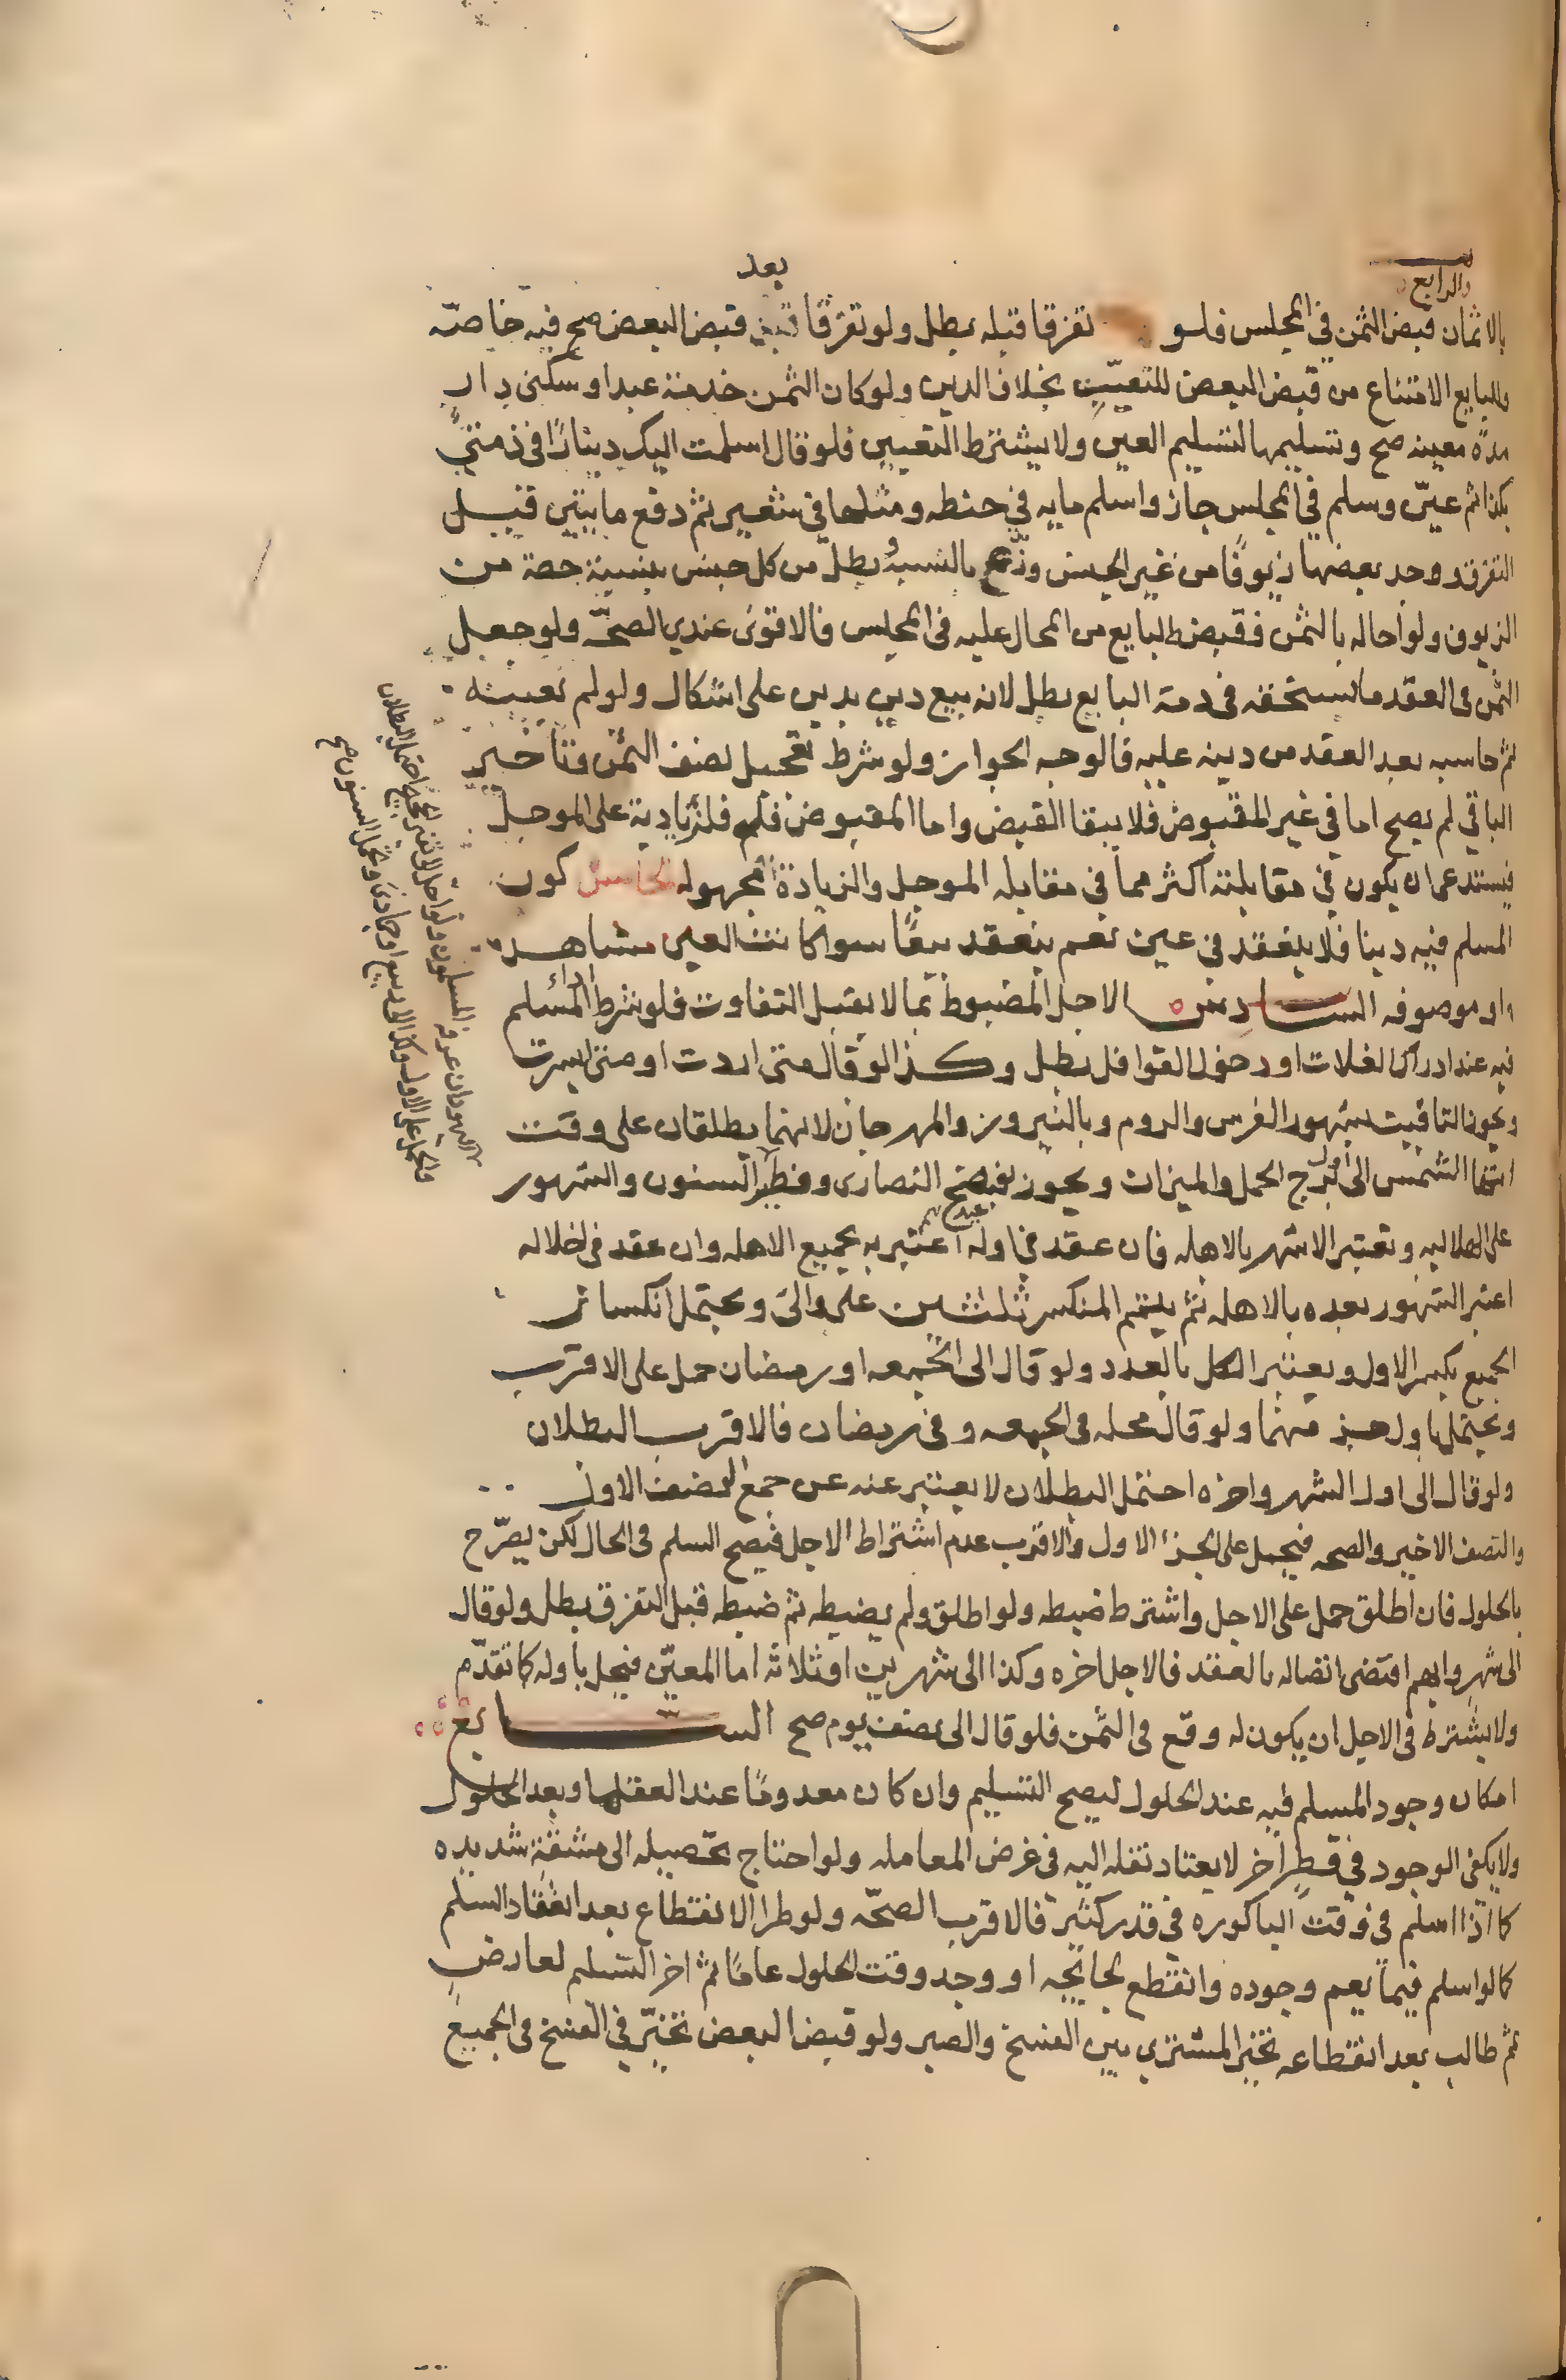 والرابع
بعد
بالاثمان قبض الثمن في المجلس فلو تفرقا قبله بطل ولو تفرقا قبض البعض صح فيه خاصّه
وللبايع الامتناع من قبض البعض للتعيّب بخلاف الدين ولو كان الثمن خدمة عبد او سكنى دار
مدّه معينه صح وتسليمها لتسليم العين ولا يشترط التعيين فلو قال اسلمت اليك دينارًا في ذمتي
بكذا ثم عيّن وسلم في المجلس جاز واسلم مايه في حنطه ومثلها في شعير ثم دفع مايتين قبل
التفرق ووجد بعضها زيوفًا من غير الجنس وزّع بالنسبه وبطل من كل جنس بنسبة حصة من
الزيوف ولو احاله بالثمن فقبضه البايع من المحال عليه في المجلس فالاقوى عندي الصحّه ولو جعل
الثمن في العقد ما يستحقه في ذمة البايع بطل لانه بيع دين بدين على اشكال ولو لم يعينه
ثم حاسبه بعد العقد من دينه عليه فالوجه الجواز ولو شرط تعجيل نصف الثمن وتاخير
الباقي لم يصح اما في غير المقبوض فلا يبقا القبض واما المقبوض فلم فلزيادية على الموجل
فيستدعى ان يكون في مقابلته اكثر مما في مقابله الموجل والزيادة مجهوله الخامس كون
المسلم فيه دينا فلا ينعقد في عين نعم ينعقد بيعًا سوا كانت العين مشاهدة
او موصوفه السادس الاجل المضبوط بما لا يقبل التفاوت فلو شرط اداء المسلم
فيه عند ادراك الغلات او دخول القوافل بطل وكذا لو قال متى اردت او متى ايسرت
ويجوز التاقيت بشهور الفرس والروم وبالنيروز والمهرجان لانهما يطلقان على وقت
انتها الشمس الى اول برج الحمل والميزان ويجوز بفصح النصارى وفطر السنون والشهور
عيد
على الهلاليه وتعتبر الاشهر بالاهله فان عقد في اوله اعتبر به بجميع الاهله وان عقد في خلاله
اعتبر الشهور بعده بالاهله ثم يتم المنكسر ثلثين على والى ويحتمل انكسار
الجميع بكسر الاول ويعتبر الكل بالعدد ولو قال الى الجمعه او رمضان حمل على الاقرب
ويحتمل باول منهما ولو قال محله في الجمعه وفي رمضان فالاقرب البطلان
ولو قال الى اول الشهر واخره احتمل البطلان لا يعتبر عنه عن جمع النصف الاول
والنصف الاخير والصحه فيحمل على الجزء الاول والاقرب عدم اشتراط الاجل فيصح السلم في الحال لكن يصرّح
بالحلول فان اطلق حمل على الاجل واشترط ضبطه ولو اطلق ولم يضبطه ثم ضبطه قبل التفرق بطل ولو قال
الى شهر وابهم اقتضى اتصاله بالعقد فالاجل اخره وكذا الى شهرين او ثلاثه اما المعيّن فيحل باوله كما تقدّم
ولا يشترط في الاجل ان يكون له وقع في الثمن فلو قال الى نصف يوم صح السابع
امكان وجود المسلم فيه عند الحلول ليصح التسليم وان كان معدومًا عند العقد او بعد الحلول
ولا يكفي الوجود في قطر اخر لا يعتاد نقله اليه في غرض المعامله ولو احتاج تحصيله الى مشقة شديده
كما اذا اسلم في وقت الباكوره في قدر كثير فالاقرب الصحّه ولو طرا الانقطاع بعد انعقاد السلم
كما لو اسلم فيما يعم وجوده وانقطع بجايحه او وجد وقت الحلول عامًا ثم اخر التسليم لعارض
ثم طالب بعد انقطاعه تخير المشتري بين الفسخ والصبر ولو قبض البعض تخيّر في الفسخ في الجميع
اليهود ان عرفه المسلمون ولو اجل الى نفر الحجيج احتمل البطلان
والحمل على الاول وكذا الى ربيع او جمادى ويحمل السنون صح